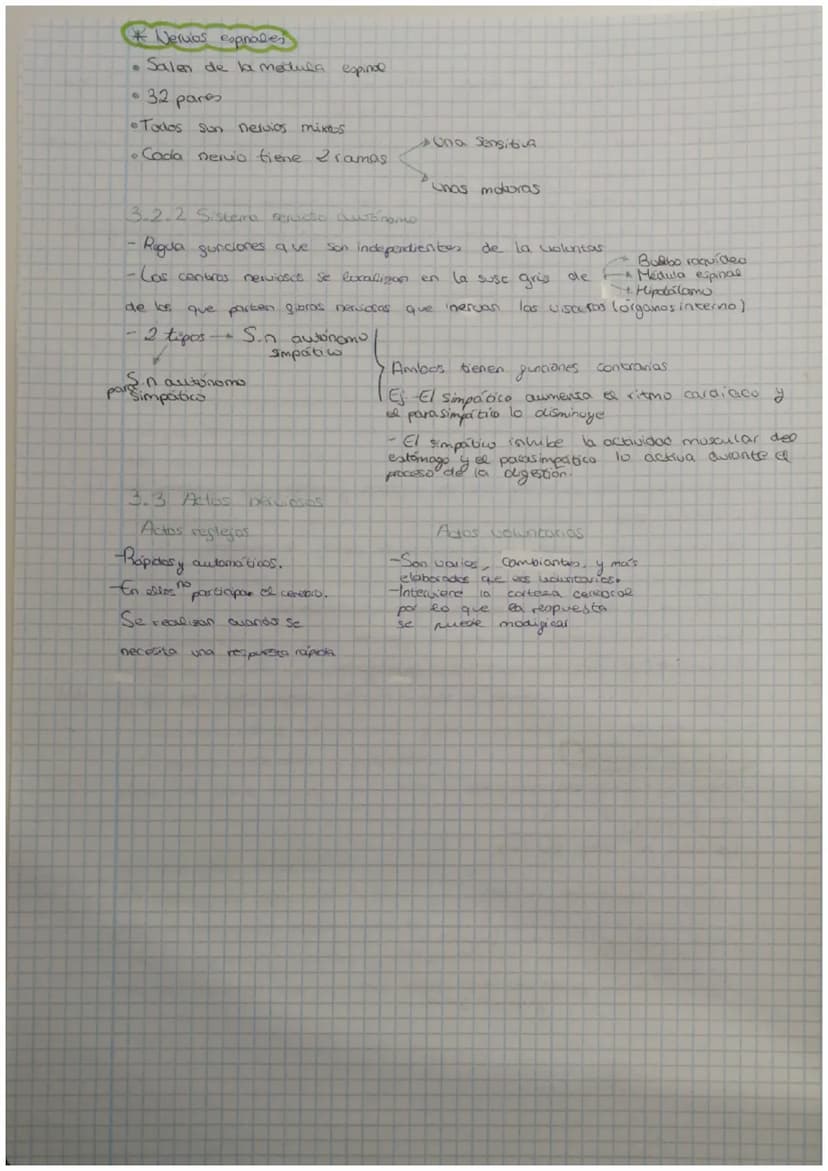 * Nervios espinales
• Salen de la medula espinal
• 32 pares
• Todos son nervios mixtos
• Cada nervio tiene 2 ramas
Una sensitiva
Unas motoras
3.2.2 Sistema nervioso autónomo
- Regula funciones que son independientes de la voluntas
- Los centros nerviosos se localizan en la sust gris de
Bulbo raquídeo
Médula espinal
Hipotálamo
de los que parten fibras nerviosas que inervan las visceras (órganos interno)
- 2 tipos → S.n autónomo simpático
S.n autónomo parasimpático
Ambos tienen funciones contrarias
Ej - El simpático aumenta el ritmo cardíaco y
el parasimpático lo disminuye
- El simpático inhibe la actividad muscular del
estómago y el parasimpático lo activa durante el
proceso de la digestión.
3.3 Actos nerviosos
Actos reflejos
- Rápidos y automáticos.
- En estos no participan el cerebro.
Se realizan cuando se
necesita una respuesta rápida
Actos voluntarios
- Son varios, cambiantes, y más
elaborados que los voluntarios.
- Interviene la corteza cerebral
por lo que la respuesta
se puede modificar